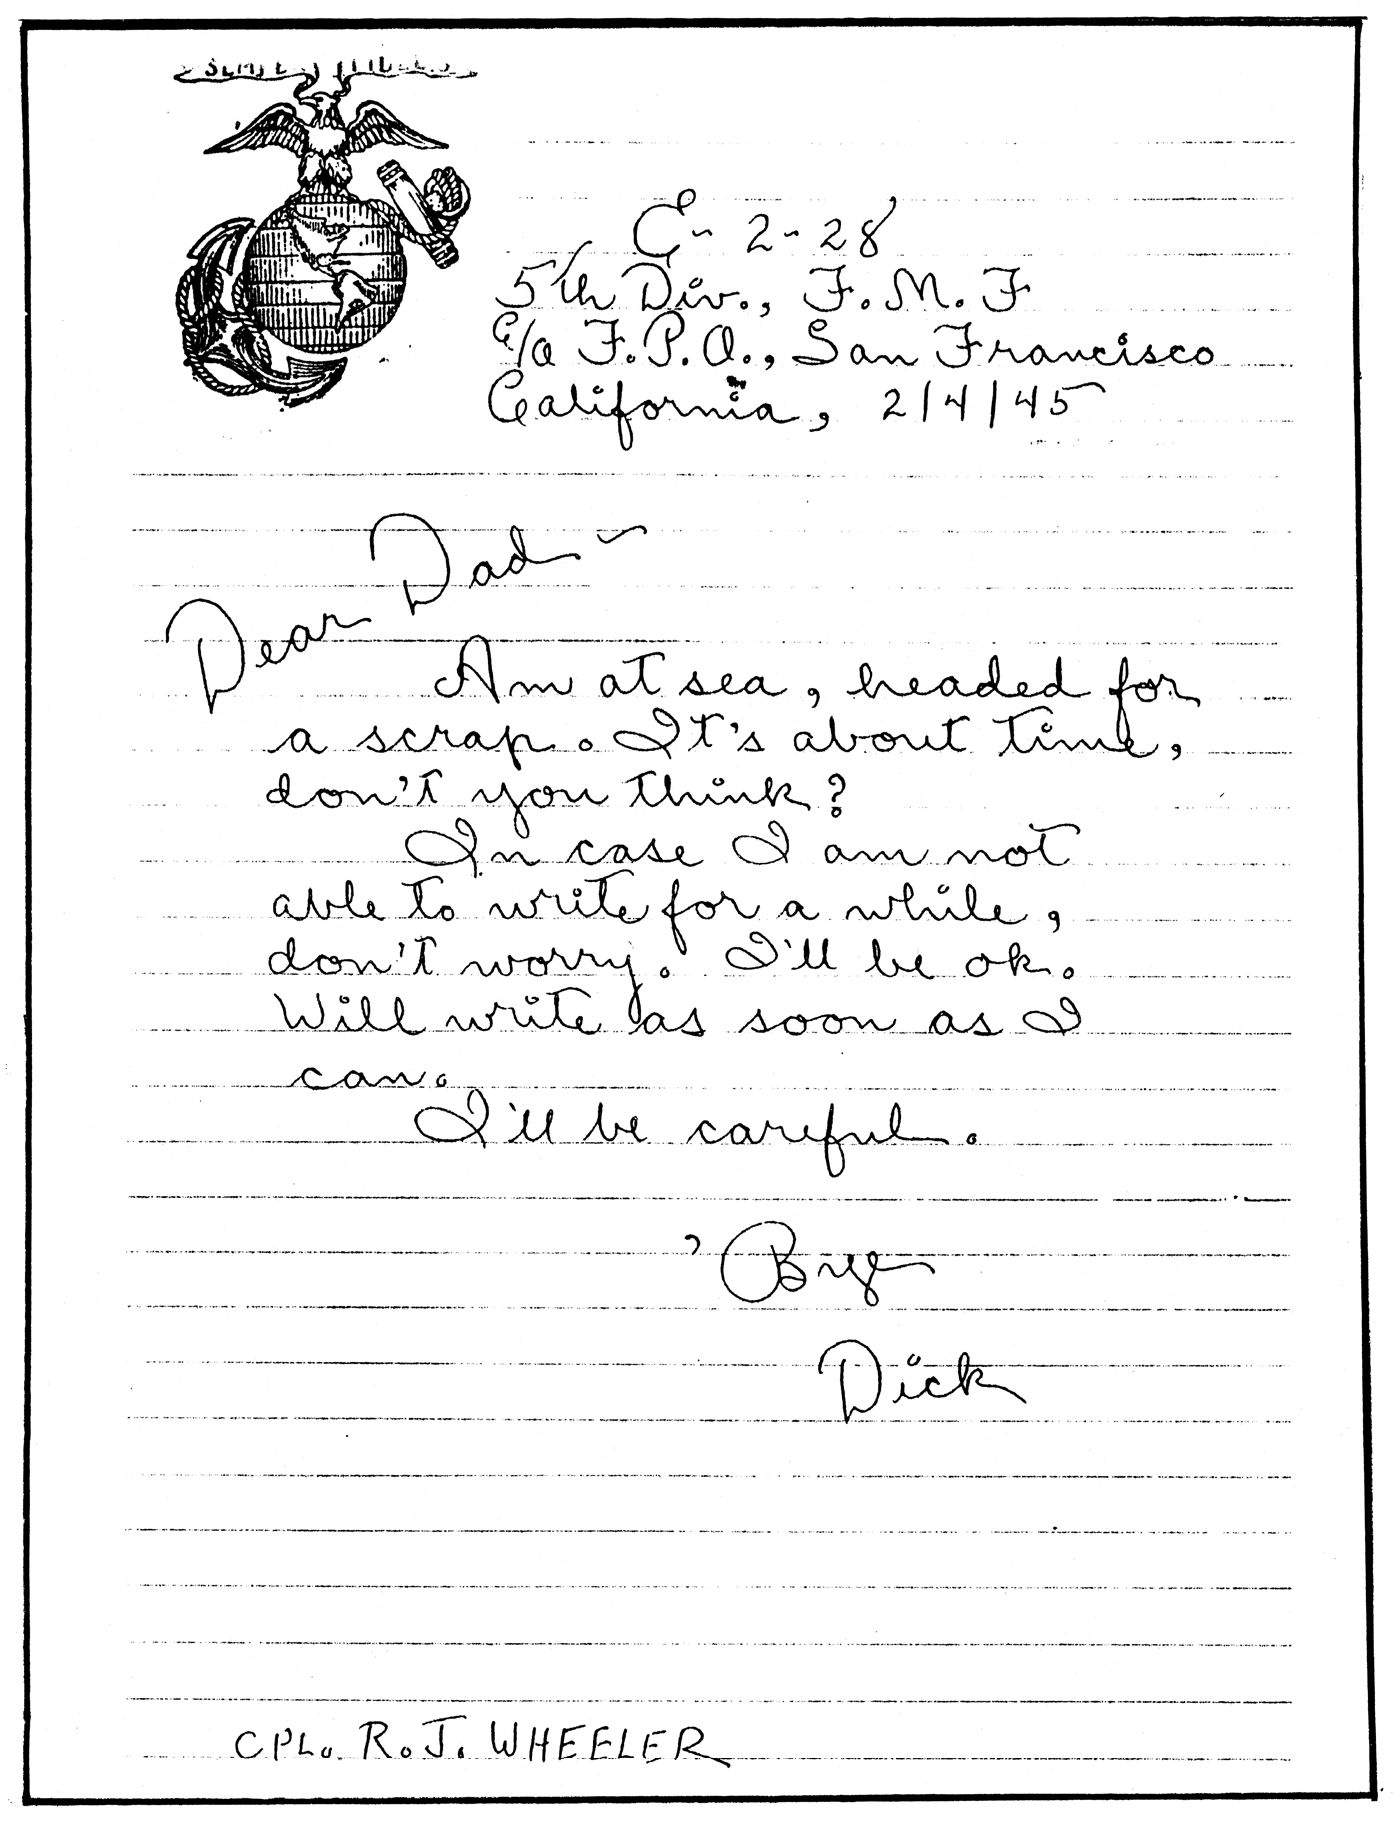 SEMPER FIDELIS
E-2-28
5th Div., F.M.F
c/o F.P.O., San Francisco
California, 2/4/45
Dear Dad –
Am at sea, headed for
a scrap. It's about time,
don't you think?
In case I am not
able to write for a while,
don't worry. I'll be ok.
Will write as soon as I
can.
I'll be careful.
'Bye
Dick
CPL. R.J. WHEELER